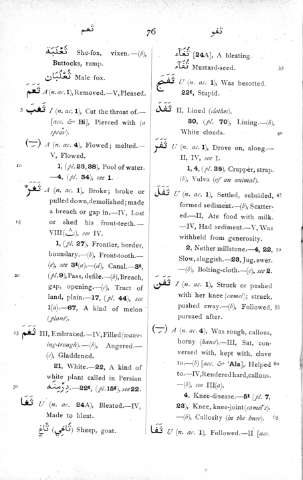 ثعم 76 ثفو
ثَعْلَبَة She-fox, vixen.—(b),
Buttocks, rump.
ثُعْلُبَان Male fox.
ثَعَم A (n. ac. 1), Removed.—V, Pleased.
I (n. ac. 1), Cut the throat of.—
[acc. & Bi], Pierced with (a
spear).
(—) A (n. ac. 4), Flowed; melted.—
V, Flowed.
1, (pl. 23, 38), Pool of water.
—4, (pl. 34), see 1.
ثَغَر A (n. ac. 1), Broke; broke or
pulled down, demolished; made
a breach or gap in.—IV, Lost
or shed his front-teeth.—
VIII, see IV.
1, (pl. 27), Frontier, border,
boundary.—(b), Front-tooth.—
(pl. 9), Pass, defile.—(b), Breach,
gap, opening.—(c), Tract of
land, plain.—17, (pl. 44), see
1(a).—67, A kind of melon
(plant).
III, Embraced.—IV, Filled (water-
ing-trough).—(b), Angered.—
(c), Gladdened.
21, White.—22, A kind of
white plant called in Persian
ثَغَا U (n. ac. 24A), Bleated.—IV,
Made to bleat.
(ثَاغِي) ثَاغٍ Sheep, goat.
(24A), A bleating.
ثُفَّاء Mustard-seed.
U (n. ac. 1), Was besotted.
22ᵃ, Stupid.
II, Lined (clothes).
30, (pl. 70), Lining.—(b),
White clouds.
ثَفَر U (n. ac. 1), Drove on, along.—
II, IV, see 1.
1, 4, (pl. 38), Crupper, strap.
(b), Vulva (of an animal).
ثَفَل U (n. ac. 1), Settled, subsided,
formed sediment.—(b), Scatter-
ed.—II, Ate food with milk.
—IV, Had sediment.—V, Was
withheld from generosity.
2, Nether millstone.—4, 22,
Slow, sluggish.—23, Jug, ewer.
—(b), Bolting-cloth.—(c), see 2.
ثَفَن I (n. ac. 1), Struck or pushed
with her knee (camel); struck,
pushed away.—(b), Followed,
pursued after.
(—) A (n. ac. 4), Was rough, callous,
horny (hand).—III, Sat, con-
versed with, kept with, clave
to.—(b) [acc. & 'Ala], Helped
to.—IV, Rendered hard, callous.
—(b), see III(a).
4, Knee-disease.—5ᵗ (pl. 7,
23), Knee, knee-joint (camel's).
—(b), Callosity (in the knee).
ثَفَا U (n. ac. 1), Followed.—II [acc.